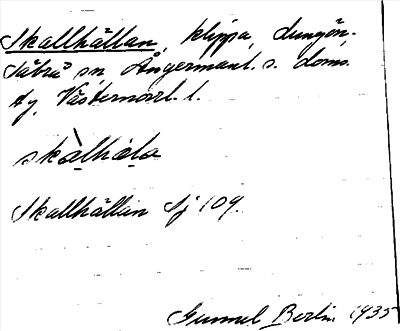 Skallhällan, klippa, Lungön.
Säbrå sn, Ångermanl. s. doms.
tg, Västernorrl. l.
skàlhälạ
Skallhällan Sj 109.
Gunnel Berlin 1935